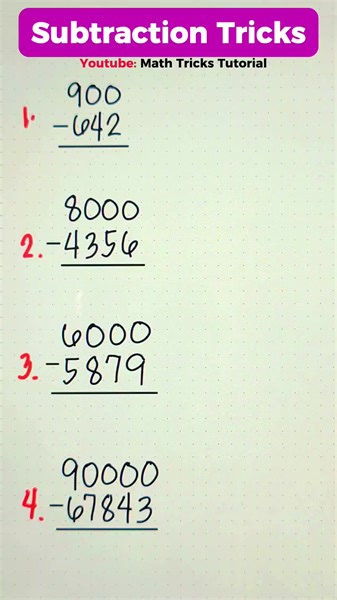 Subtraction Tricks
Youtube: Math Tricks Tutorial
900
1. -642
8000
2. -4356
6000
3. -5879
90000
4. -67843